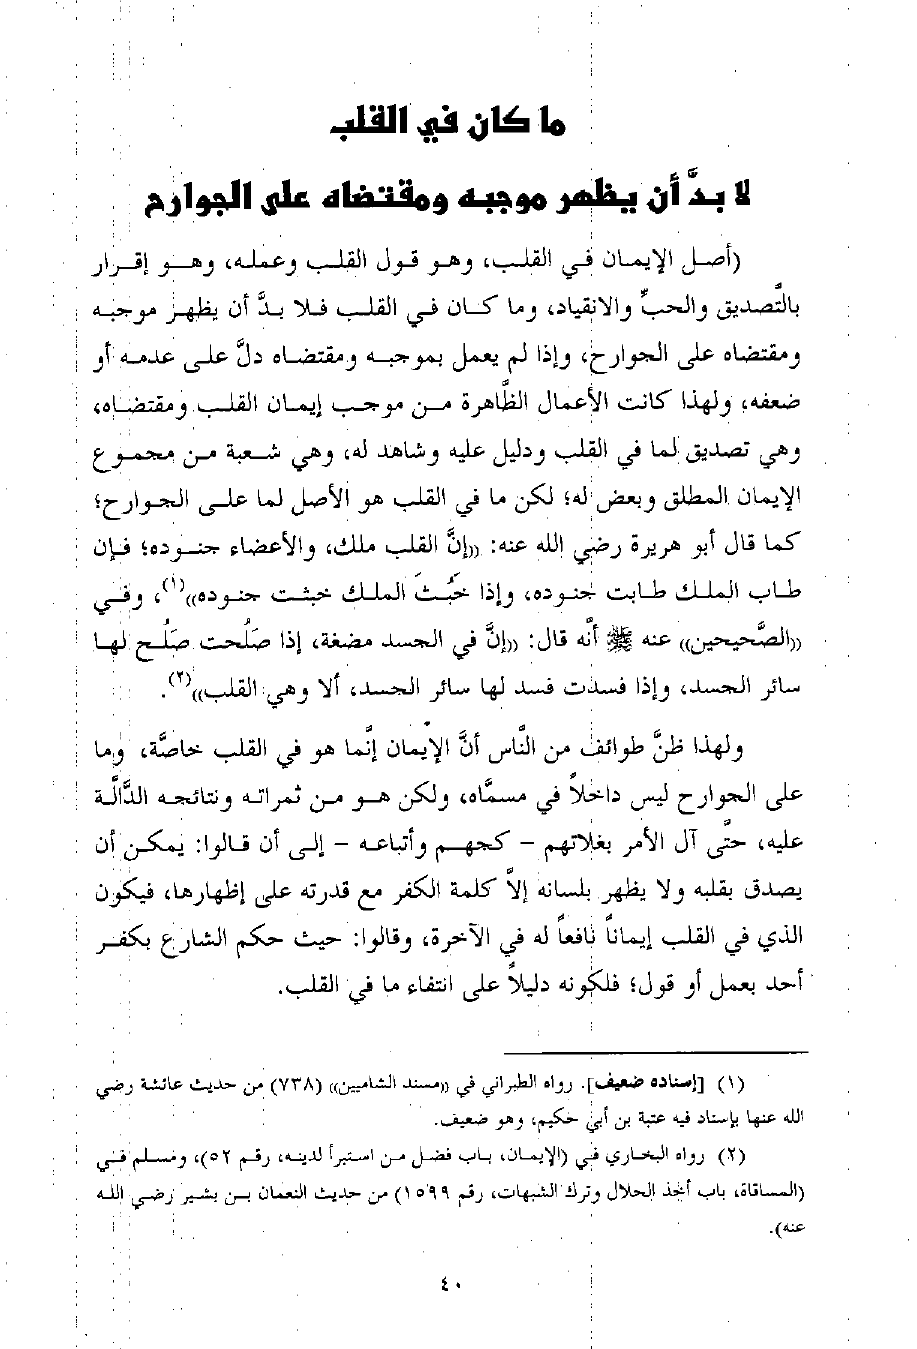 ما كان في القلب
لا بدَّ أن يظهر موجبه ومقتضاه على الجوارح
(أصل الإيمان في القلب، وهو قول القلب وعمله، وهو إقرار
بالتَّصديق والحبِّ والانقياد، وما كان في القلب فلا بدَّ أن يظهر موجبه
ومقتضاه على الجوارح، وإذا لم يعمل بموجبه ومقتضاه دلَّ على عدمه أو
ضعفه، ولهذا كانت الأعمال الظَّاهرة من موجب إيمان القلب ومقتضاه،
وهي تصديق لما في القلب ودليل عليه وشاهد له، وهي شعبة من مجموع
الإيمان المطلق وبعض له؛ لكن ما في القلب هو الأصل لما على الجوارح؛
كما قال أبو هريرة رضي الله عنه: ((إنَّ القلب ملك، والأعضاء جنوده؛ فإن
طاب الملك طابت جنوده، وإذا خبُث الملك خبثت جنوده))(١)، وفي
((الصَّحيحين)) عنه ﷺ أنَّه قال: ((إنَّ في الجسد مضغة، إذا صَلُحت صَلُح لها
سائر الجسد، وإذا فسدت فسد لها سائر الجسد، ألا وهي القلب))(٢).
ولهذا ظنَّ طوائف من النَّاس أنَّ الإيمان إنَّما هو في القلب خاصَّة، وما
على الجوارح ليس داخلاً في مسمَّاه، ولكن هو من ثمراته ونتائجه الدَّالَّة
عليه، حتَّى آل الأمر بغلاتهم – كجهم وأتباعه – إلى أن قالوا: يمكن أن
يصدق بقلبه ولا يظهر بلسانه إلاَّ كلمة الكفر مع قدرته على إظهارها، فيكون
الذي في القلب إيماناً نافعاً له في الآخرة، وقالوا: حيث حكم الشارع بكفر
أحد بعمل أو قول؛ فلكونه دليلاً على انتفاء ما في القلب.
(١) [إسناده ضعيف]. رواه الطبراني في ((مسند الشاميين)) (٧٣٨) من حديث عائشة رضي
الله عنها بإسناد فيه عتبة بن أبي حكيم، وهو ضعيف.
(٢) رواه البخاري في (الإيمان، باب فضل من استبرأ لدينه، رقم ٥٢)، ومسلم في
(المساقاة، باب أخذ الحلال وترك الشبهات، رقم ١٥٩٩) من حديث النعمان بن بشير رضي الله
عنه).
٤٠